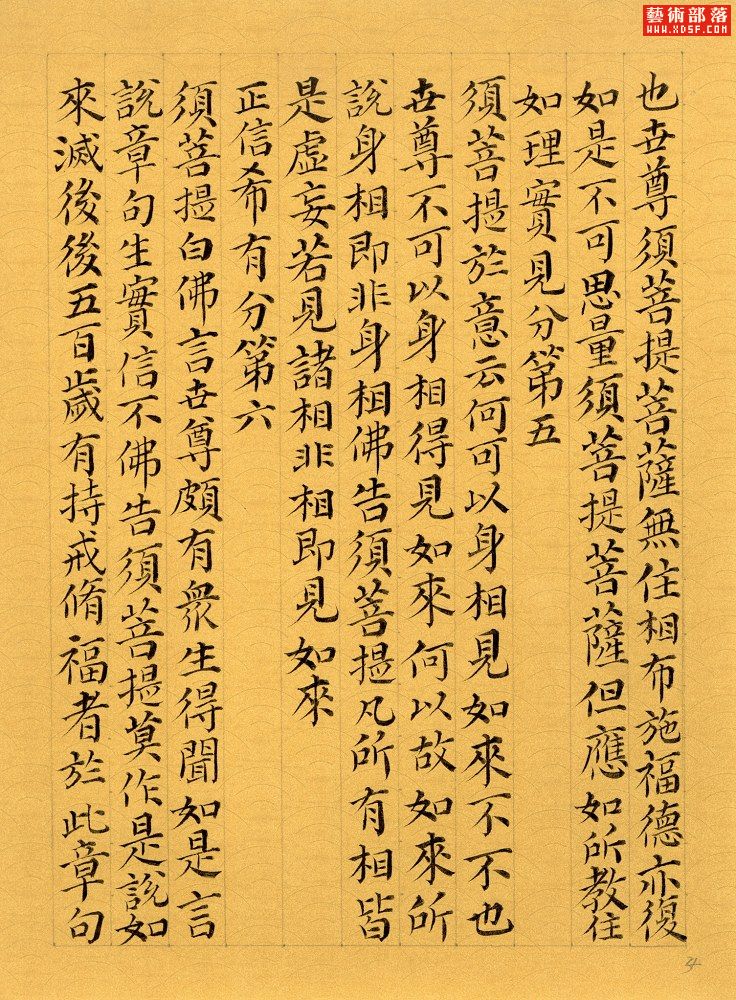 藝術部落
WWW.XDSF.COM
也世尊須菩提菩薩無住相布施福德亦復
如是不可思量須菩提菩薩但應如所教住
如理實見分第五
須菩提於意云何可以身相見如來不不也
世尊不可以身相得見如來何以故如來所
說身相即非身相佛告須菩提凡所有相皆
是虛妄若見諸相非相即見如來
正信希有分第六
須菩提白佛言世尊頗有眾生得聞如是言
說章句生實信不佛告須菩提莫作是說如
來滅後後五百歲有持戒脩福者於此章句